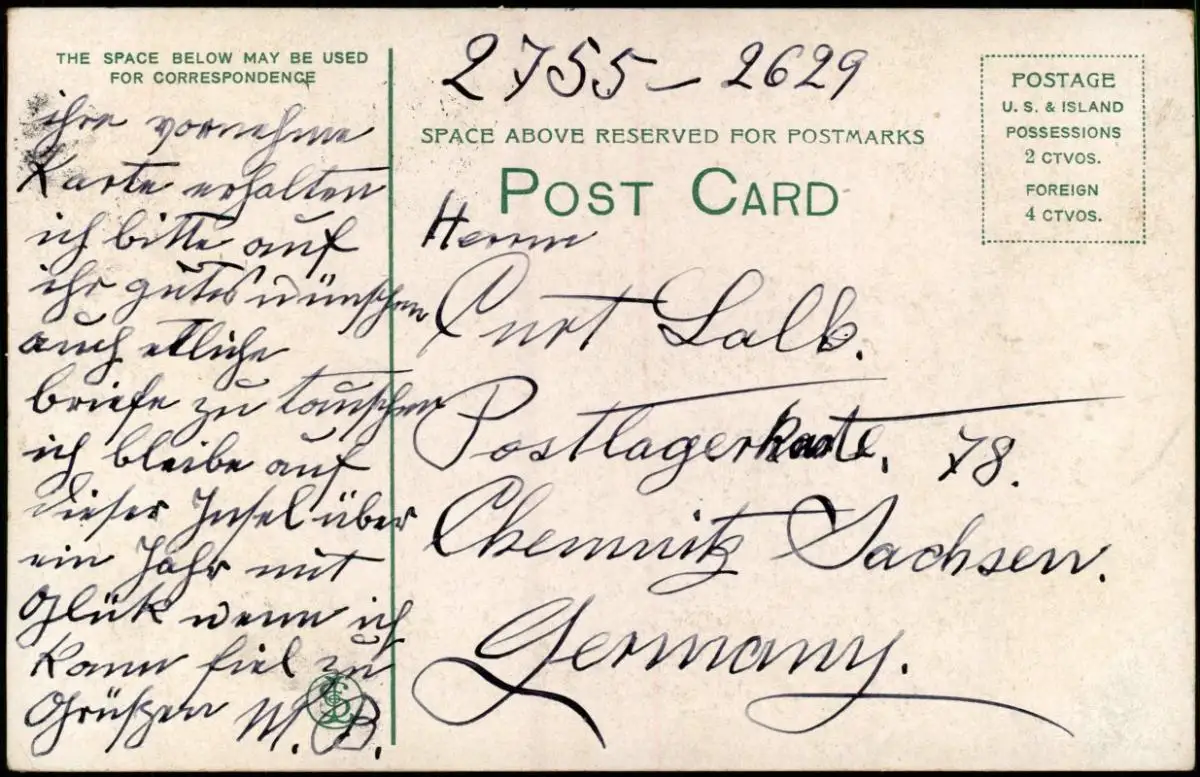 THE SPACE BELOW MAY BE USED
FOR CORRESPONDENCE
ihre vornehme
Karte erhalten
ich bitte auf
ihr gutes wünschen
auch etliche
briefe zu tauschen
ich bleibe auf
dieser Insel über
ein Jahr mit
Glük wenn ich
Kann fiel zu
Grüßen M. B.
2755 - 2629
SPACE ABOVE RESERVED FOR POSTMARKS
POST CARD
Herrn
Curt Lalb.
Postlagerkarte, 78.
Chemnitz Sachsen.
Germany.
POSTAGE
U. S. & ISLAND
POSSESSIONS
2 CTVOS.
FOREIGN
4 CTVOS.